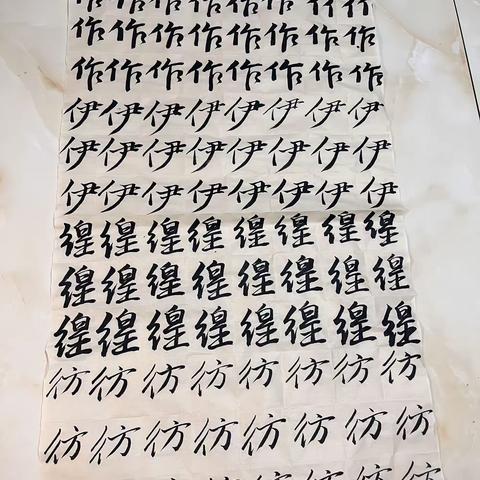 作作作作作作作作
作作作作作作作作
伊伊伊伊伊伊伊伊
伊伊伊伊伊伊伊伊
伊伊伊伊伊伊伊伊
徨徨徨徨徨徨徨徨
徨徨徨徨徨徨徨徨
徨徨徨徨徨徨徨徨
彷彷彷彷彷彷彷彷
彷彷彷彷彷彷彷彷